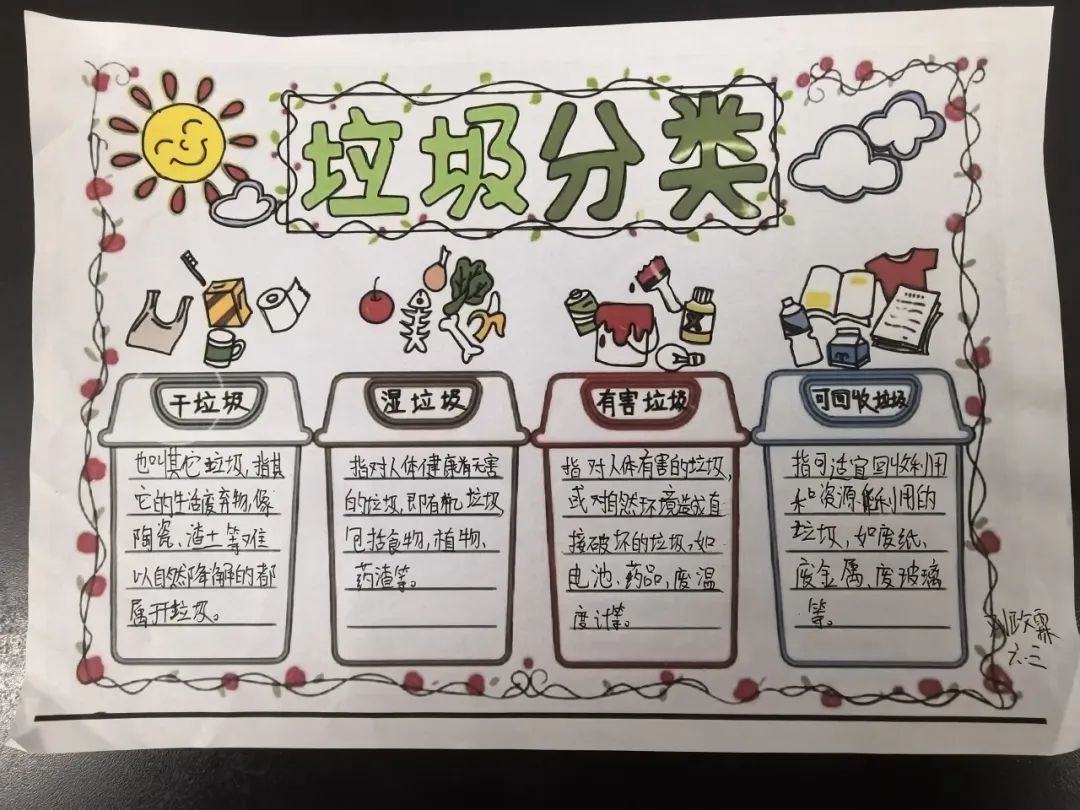 垃圾分类
干垃圾
也叫其它垃圾,指其
它的生活废弃物,像
陶瓷、渣土等难
以自然降解的都
属开垃圾。
湿垃圾
指对人体健康有无害
的垃圾,即有机垃圾,
包括食物,植物、
药渣等。
有害垃圾
指对人体有害的垃圾,
或对自然环境造成直
接破坏的垃圾,如
电池、药品,废温
度计等。
可回收垃圾
指可适宜回收利用
和资源能利用的
垃圾,如废纸、
废金属、废玻璃
等。
刘政霖
六.三